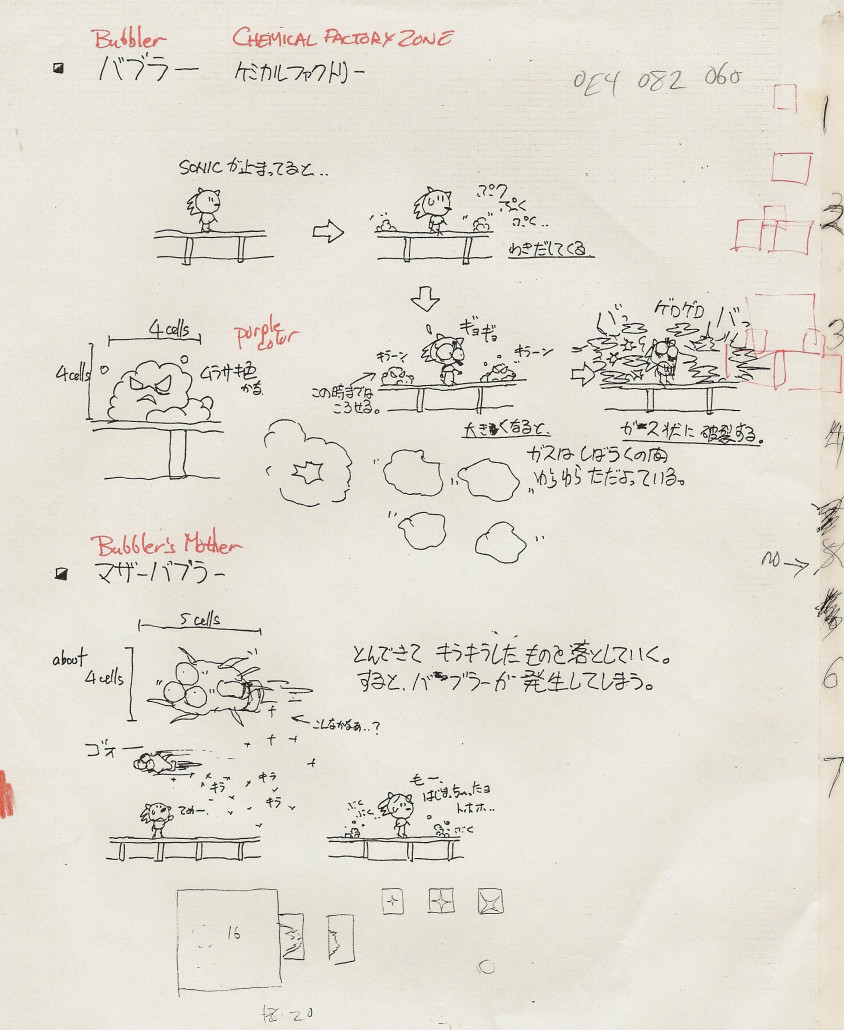 Bubbler CHEMICAL FACTORY ZONE
バブラー ケミカルファクトリー
0E4 082 060
1
SONICが止まってると..
ぷク
ぷく
ぷく..
わきだしてくる
2
4 cells
4 cells
purple color
ムラサキ色
かな
ギョギョ
キラーン
キラーン
この時までは
ころせる。
大きくなると、
バッ
ゲロゲロ
バッ
ガス状に破裂する。
3
ガスはしばらくの間
ゆらゆらただよっている。
4
Bubbler's Mother
マザーバブラー
no →
5 cells
about
4 cells
とんできて キラキラしたものを落としていく。
すると、バブラーが発生してしまう。
こんなかなぁ..?
6
ゴォー
キラ
キラ
キラ
てめー..
もー、
はじまっちゃったョ
トホホ...
ぷく
ぷく
ぷく
7
16
20